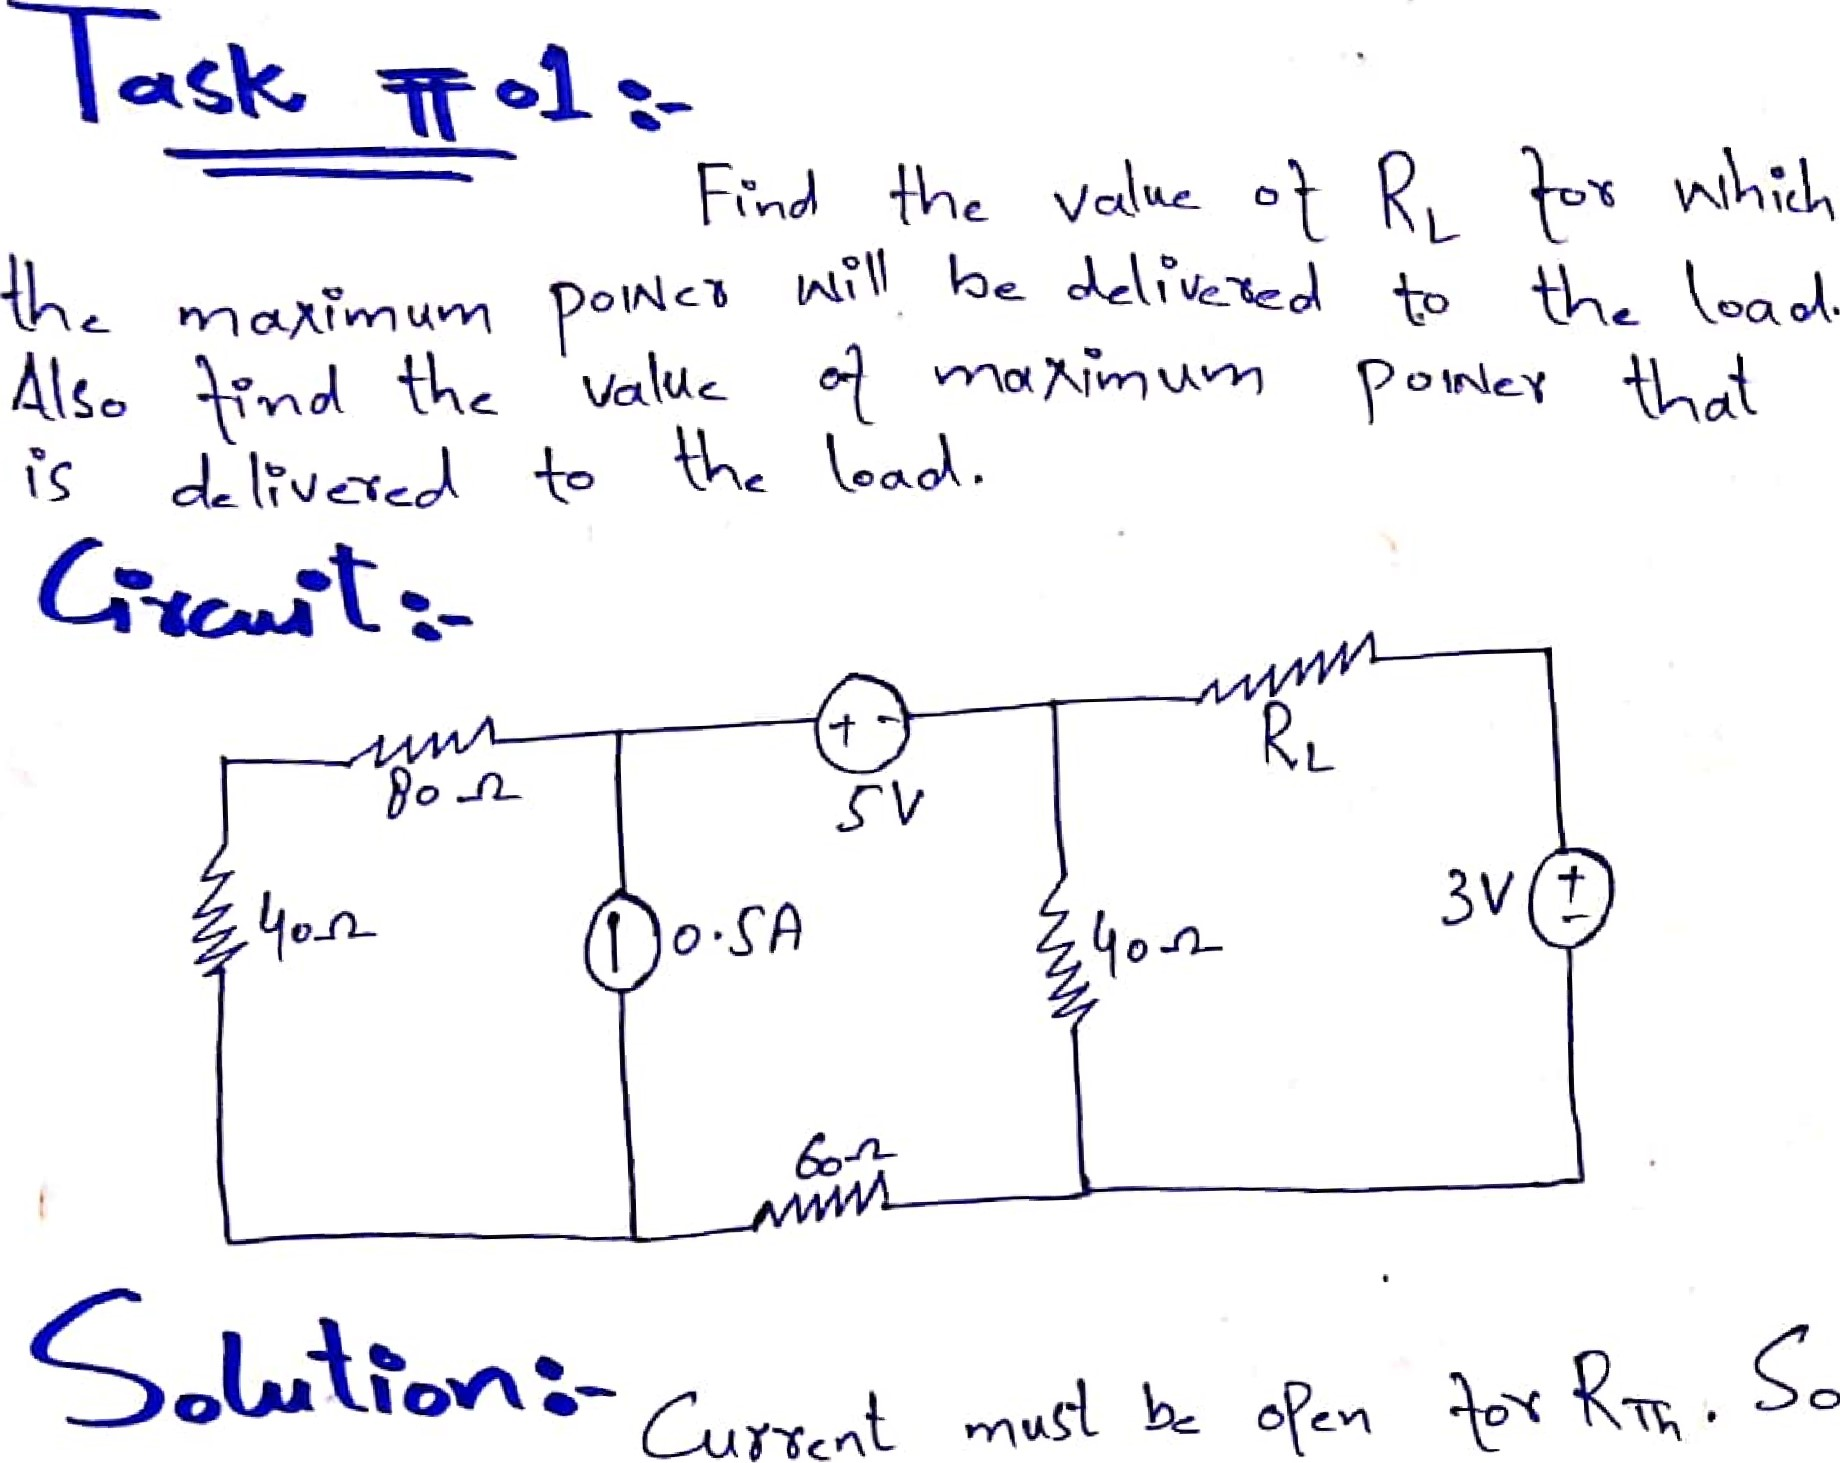 Task #01:-
Find the value of RL for which
the maximum power will be delivered to the load.
Also find the value of maximum power that
is delivered to the load.
Circuit:-
80Ω
5V
RL
40Ω
0.5A
40Ω
3V
+ -
+
-
60Ω
Solution:- Current must be open for RTh. So